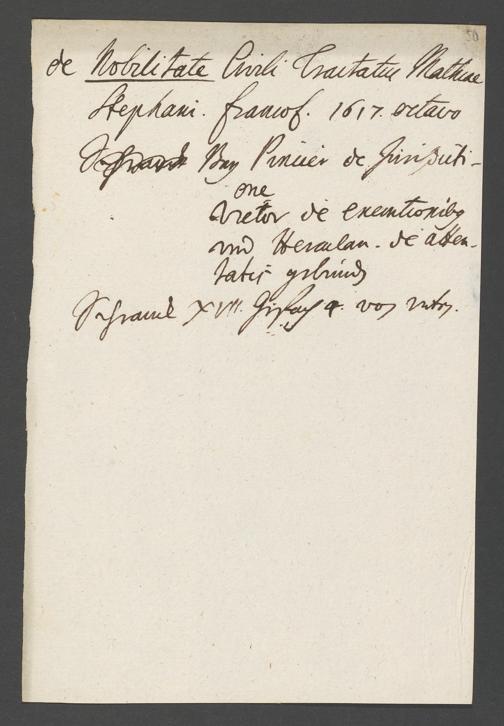 50
de Nobilitate Civili Tractatus Mathiae
Stephani. francof. 1617. octavo
Schranck Bey Pincier de Jurisdicti-
one
Vietor de exemtionibg
vnd Herculan. de atten-
tatis gebunden
Schranck XVII. Gefach 4. von vnten.